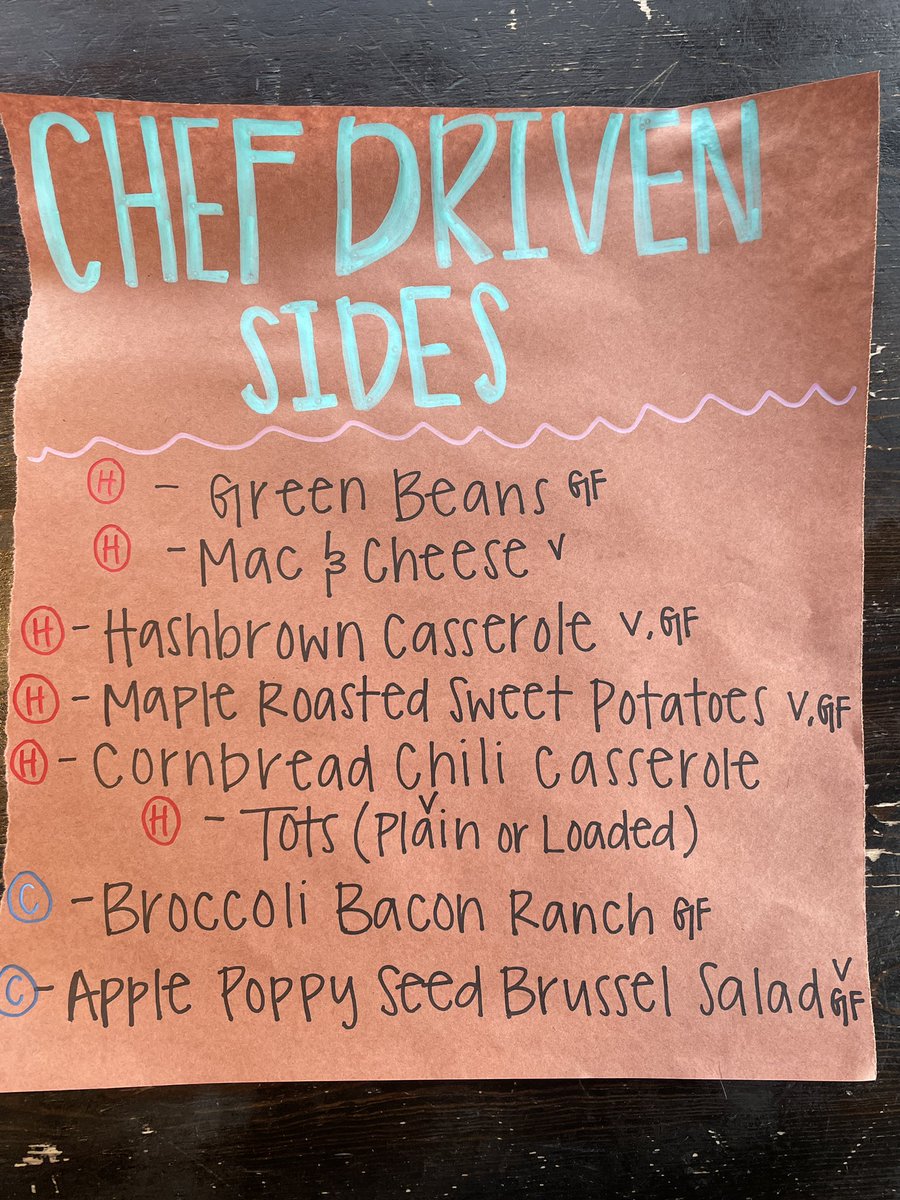 CHEF DRIVEN
SIDES
H - Green Beans GF
H - Mac & Cheese V
H - Hashbrown Casserole V, GF
H - Maple Roasted Sweet Potatoes V, GF
H - Cornbread Chili Casserole
V
H - Tots (Plain or Loaded)
C - Broccoli Bacon Ranch GF
C - Apple Poppy Seed Brussel Salad V GF